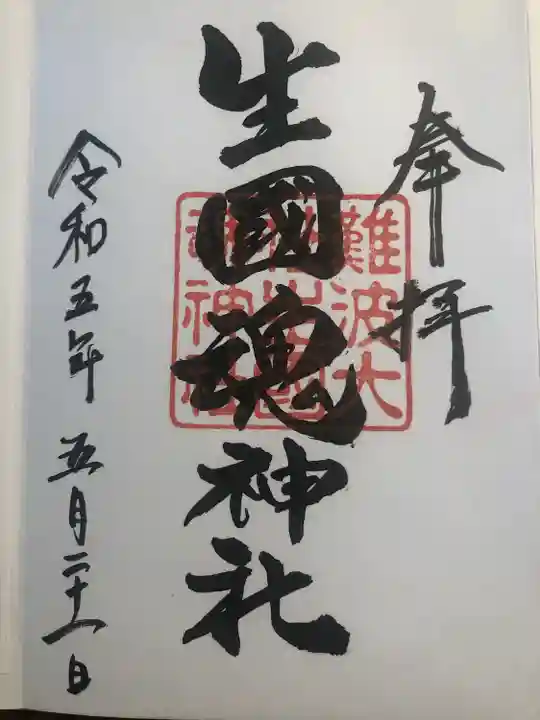 奉拝
生國魂神社
難波大
社生國
魂神社
令和五年 五月二十一日